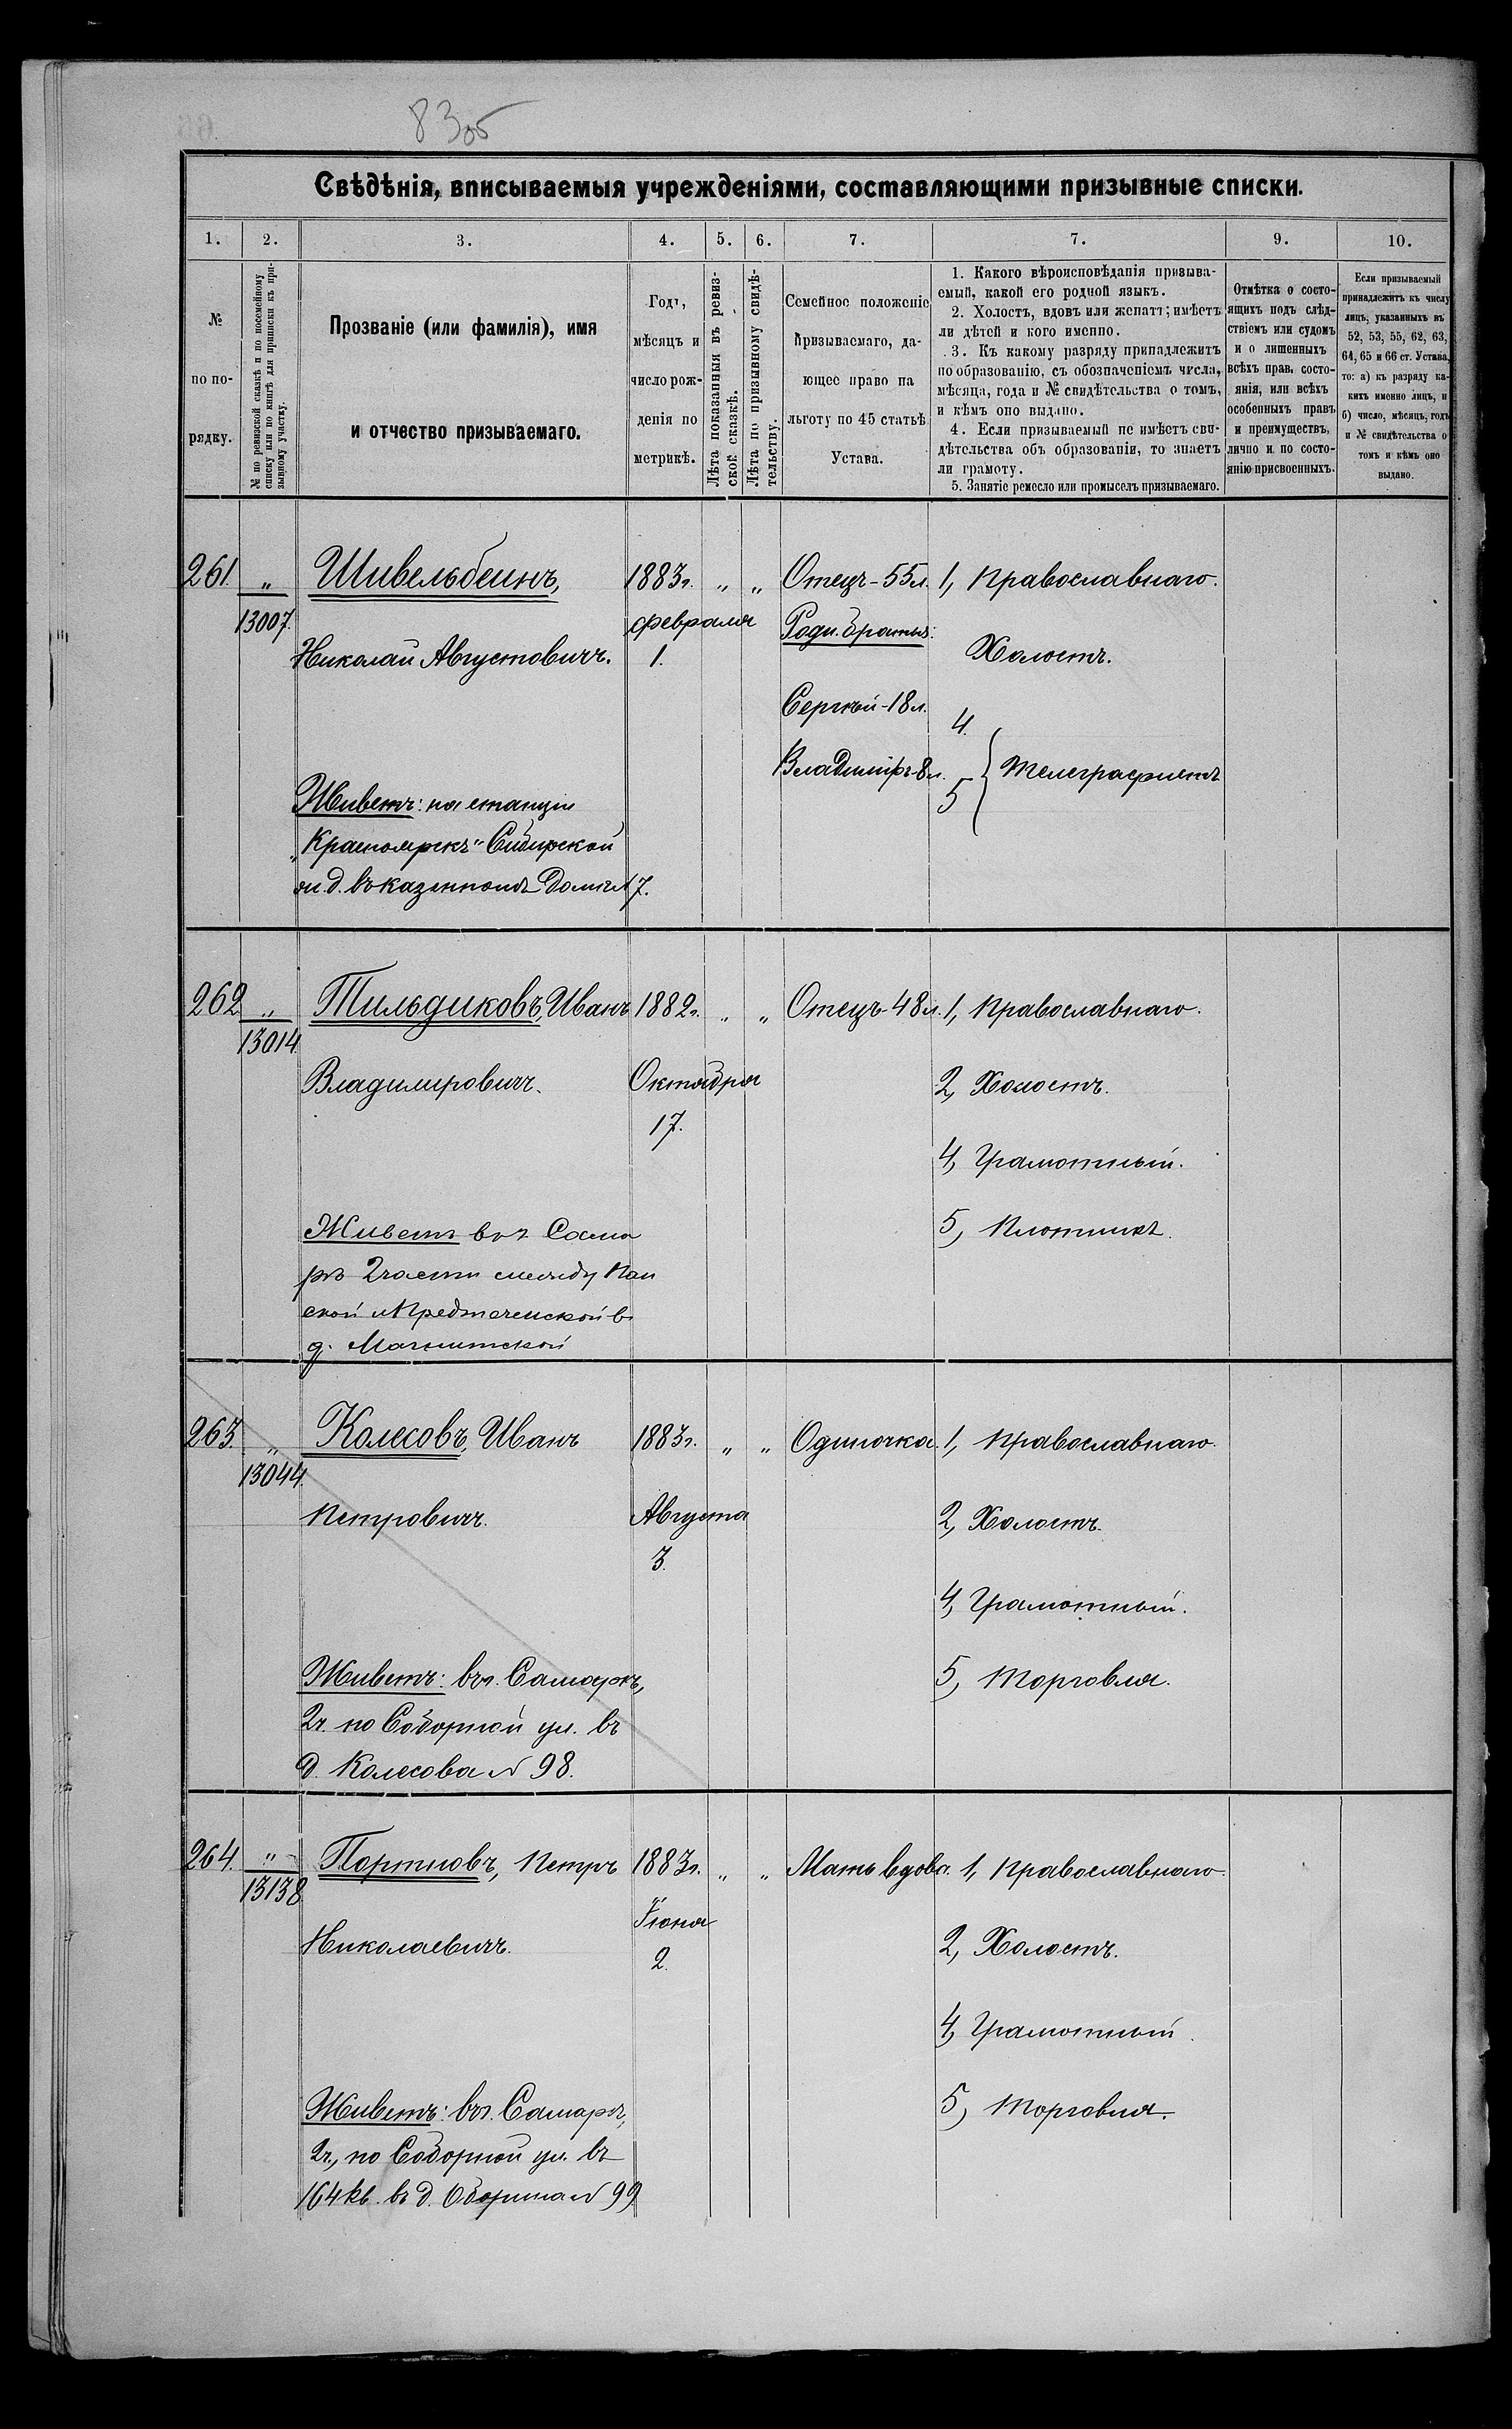 83об
Свѣдѣнія, вписываемыя учрежденіями, составляющими призывные списки.
1. 2. 3. 4. 5. 6. 7. 7. 9. 10.
№
по по-
рядку.
№ по ревизской сказкѣ и по посемейному
списку или по книгѣ для приписки къ при-
зывному участку.
Прозваніе (или фамилія), имя
и отчество призываемаго.
Годъ,
мѣсяцъ и
число рож-
денія по
метрикѣ.
Лѣта показанныя въ ревиз-
ской сказкѣ.
Лѣта по призывному свидѣ-
тельству.
Семейное положеніе
призываемаго, да-
ющее право на
льготу по 45 статьѣ
Устава.
1. Какого вѣроисповѣданія призыва-
емый, какой его родной языкъ.
2. Холостъ, вдовъ или женатъ; имѣетъ
ли дѣтей и кого именно.
3. Къ какому разряду принадлежитъ
по образованію, съ обозначеніемъ числа,
мѣсяца, года и № свидѣтельства о томъ,
и кѣмъ оно выдано.
4. Если призываемый не имѣетъ сви-
дѣтельства объ образованіи, то знаетъ
ли грамоту.
5. Занятіе ремесло или промыселъ призываемаго.
Отмѣтка о состо-
ящихъ подъ слѣд-
ствіемъ или судомъ
и о лишенныхъ
всѣхъ прав. состо-
янія, или всѣхъ
особенныхъ правъ
и преимуществъ,
лично и по состо-
янію присвоенныхъ.
Если призываемый
принадлежитъ къ числу
лицъ, указанныхъ въ
52, 53, 55, 62, 63,
64, 65 и 66 ст. Устава,
то: а) къ разряду ка-
кихъ именно лицъ, и
б) число, мѣсяцъ, годъ
и № свидѣтельства о
томъ и кѣмъ оно
выдано.
261. „ Шивельбеинъ, 1883г. „ „ Отецъ-55л. 1, Православнаго.
13007. февраля Родн. братья:
Николай Августовичъ. 1. Холостъ.
Сергѣй-18л. 4.
Владиміръ-8л. 5 Телеграфистъ
Живетъ: на станціи
„Красноярскъ" Сибирской
ж. д. въ казенномъ домѣ № 7.
262 „ Тильдиковъ, Иванъ 1882г. „ „ Отецъ-48л. 1, Православнаго.
13014.
Владимировичъ. Октября 2, Холостъ.
17.
4, Грамотный.
Живетъ въ г Сама 5, Плотникъ.
рѣ 2 части между Пан
ской и Предтеченской в
д. Магнитской
263. „ Колесовъ, Иванъ 1883г. „ „ Одиночка. 1, Православнаго.
13044.
Петровичъ. Августа 2, Холостъ.
3.
4, Грамотный.
Живетъ: въ г. Самарѣ, 5, Торговля.
2ч. по Соборной ул. въ
д. Колесова № 98.
264. „ Портновъ, Петръ 1883г. „ „ Мать вдова. 1, Православнаго.
13138. Іюня
Николаевичъ. 2. 2, Холостъ.
4, Грамотный.
Живетъ: въ г. Самарѣ, 5, Торговля.
2ч., по Соборной ул. въ
164 кв. въ д. № 99